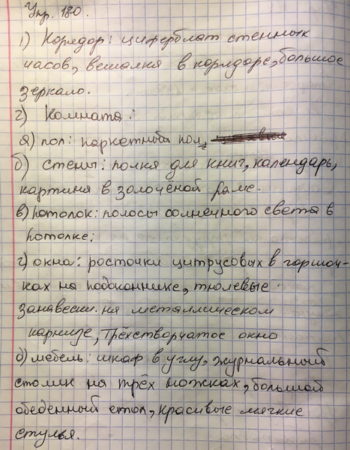 Упр. 180.
1) Коридор: циферблат стенных
часов, вешалка в коридоре, большое
зеркало.
2) Комната:
а) пол: паркетный пол,
б) стены: полка для книг, календарь,
картина в золочёной раме.
в) потолок: полосы солнечного света в
потолке;
г) окна: росточки цитрусовых в горшоч-
ках на подоконнике, тюлевые
занавески на металлическом
карнизе, трёхстворчатое окно
д) мебель: шкаф в углу, журнальный
столик на трёх ножках, большой
обеденный стол, красивые мягкие
стулья.